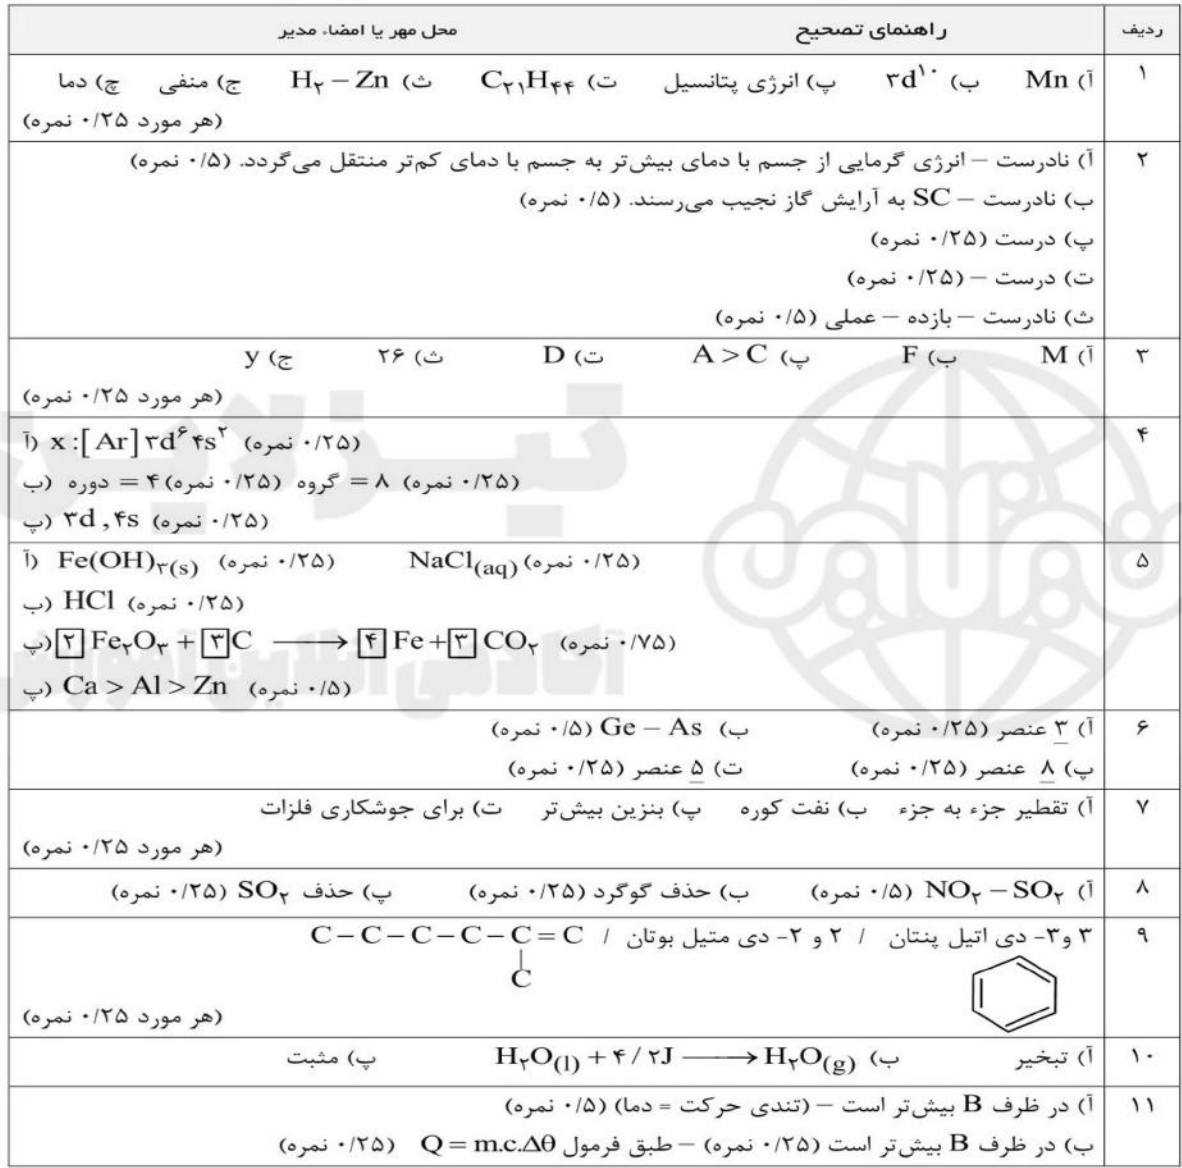 ردیف راهنمای تصحیح محل مهر یا امضاء مدیر
۱ آ) Mn ب) ۳d۱۰ پ) انرژی پتانسیل ت) C۲۱H۴۴ ث) H۲ – Zn ج) منفی چ) دما
(هر مورد ۰/۲۵ نمره)
۲ آ) نادرست – انرژی گرمایی از جسم با دمای بیش‌تر به جسم با دمای کم‌تر منتقل می‌گردد. (۰/۵ نمره)
ب) نادرست – SC به آرایش گاز نجیب می‌رسند. (۰/۵ نمره)
پ) درست (۰/۲۵ نمره)
ت) درست – (۰/۲۵ نمره)
ث) نادرست – بازده – عملی (۰/۵ نمره)
۳ آ) M ب) F پ) A > C ت) D ث) ۲۶ ج) y
(هر مورد ۰/۲۵ نمره)
۴ آ) x :[ Ar] ۳d۶ ۴s۲ (۰/۲۵ نمره)
ب) دوره = ۴ (۰/۲۵ نمره) گروه = ۸ (۰/۲۵ نمره)
پ) ۳d , ۴s (۰/۲۵ نمره)
۵ آ) Fe(OH)۳(s) (۰/۲۵ نمره) NaCl(aq) (۰/۲۵ نمره)
ب) HCl (۰/۲۵ نمره)
پ) ۲ Fe۲O۳ + ۳ C ⟶ ۴ Fe + ۳ CO۲ (۰/۷۵ نمره)
پ) Ca > Al > Zn (۰/۵ نمره)
۶ آ) ۳ عنصر (۰/۲۵ نمره) ب) Ge – As (۰/۵ نمره)
پ) ۸ عنصر (۰/۲۵ نمره) ت) ۵ عنصر (۰/۲۵ نمره)
۷ آ) تقطیر جزء به جزء ب) نفت کوره پ) بنزین بیش‌تر ت) برای جوشکاری فلزات
(هر مورد ۰/۲۵ نمره)
۸ آ) NO۲ – SO۲ (۰/۵ نمره) ب) حذف گوگرد (۰/۲۵ نمره) پ) حذف SO۲ (۰/۲۵ نمره)
۹ ۳ و۳- دی اتیل پنتان / ۲ و ۲- دی متیل بوتان / C – C – C – C – C = C
C
(هر مورد ۰/۲۵ نمره)
۱۰ آ) تبخیر ب) H۲O(l) + ۴/۲J ⟶ H۲O(g) پ) مثبت
۱۱ آ) در ظرف B بیش‌تر است – (تندی حرکت = دما) (۰/۵ نمره)
ب) در ظرف B بیش‌تر است (۰/۲۵ نمره) – طبق فرمول Q = m.c.Δθ (۰/۲۵ نمره)